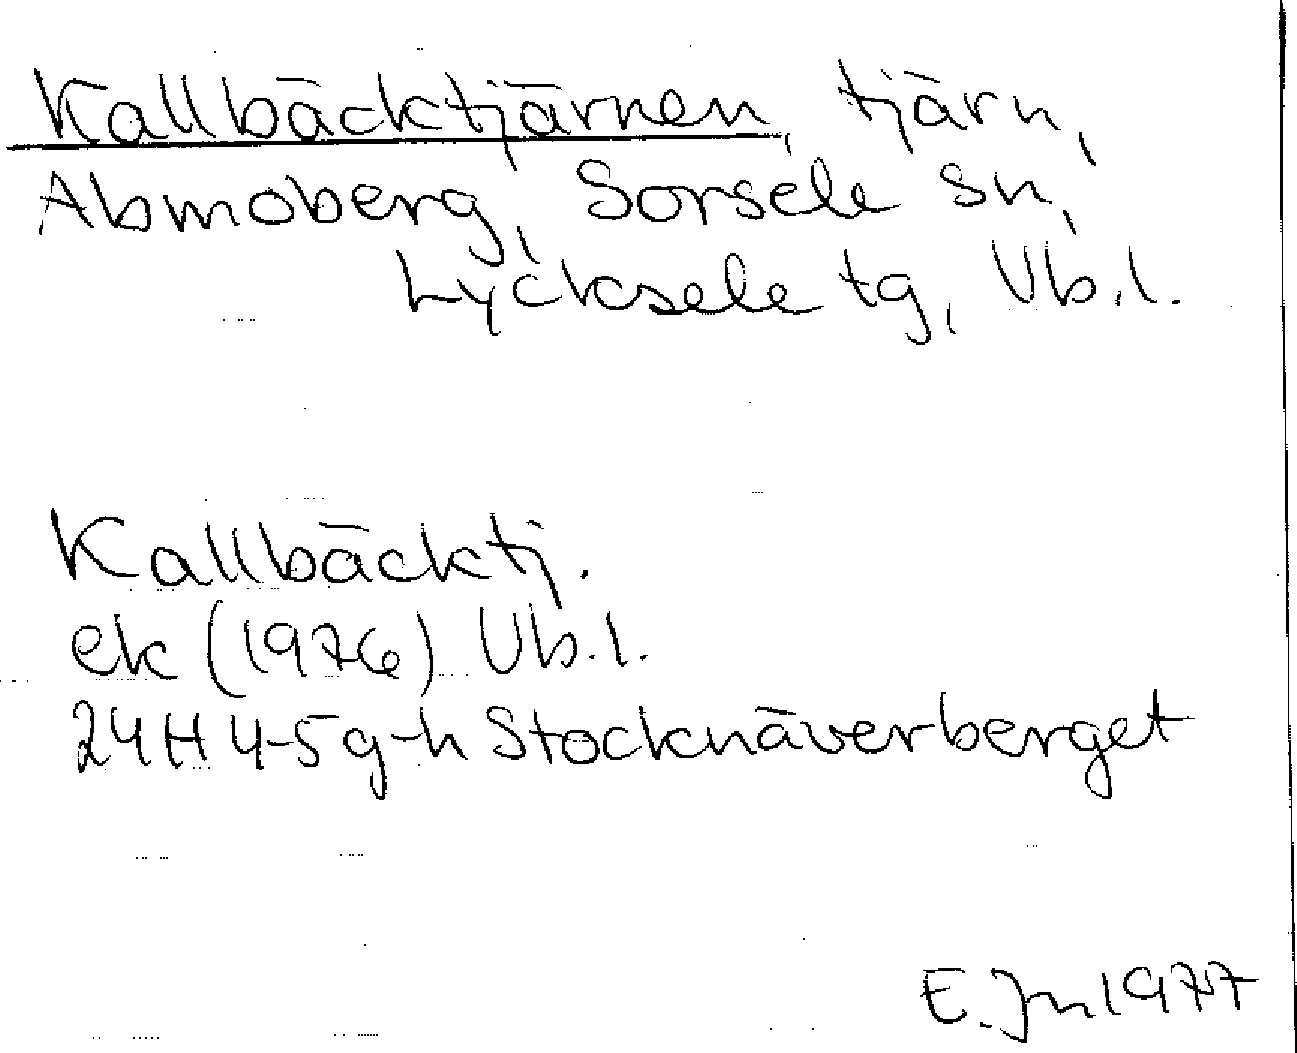 Kallbäcktjärnen, tjärn,
Abmoberg, Sorsele sn,
Lycksele tg, Vb.l.
Kallbäcktj.
ek (1976) Vb.l.
24H 4-5 g-h Stocknäverberget
E. Jn 1977